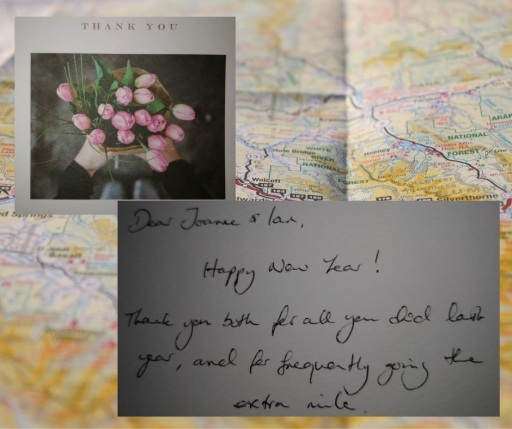 THANK YOU
Dear Joanne & Ian,
Happy New Year!
Thank you both for all you did last
year, and for frequently going the
extra mile.
WHITE
RIVER
NATIONAL
FOREST
Wolcott
NATIONAL
FOREST
Silverthorne